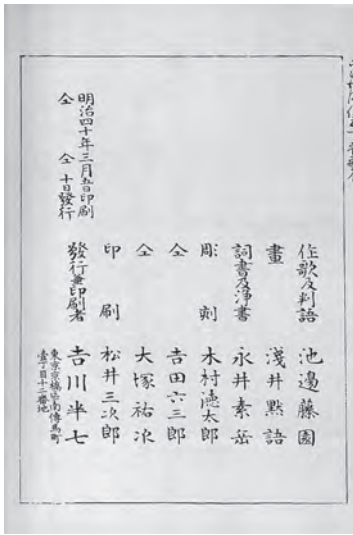 作歌及判語　池邊藤園
畫　淺井黙語
詞書及淨書　永井素岳
彫刻　木村德太郎
仝　吉田六三郎
仝　大塚祐次
印刷　松井三次郎
發行兼印刷者　吉川半七
東京京橋區南傳馬町
壹丁目十二番地
明治四十年三月五日印刷
仝　仝　十日發行